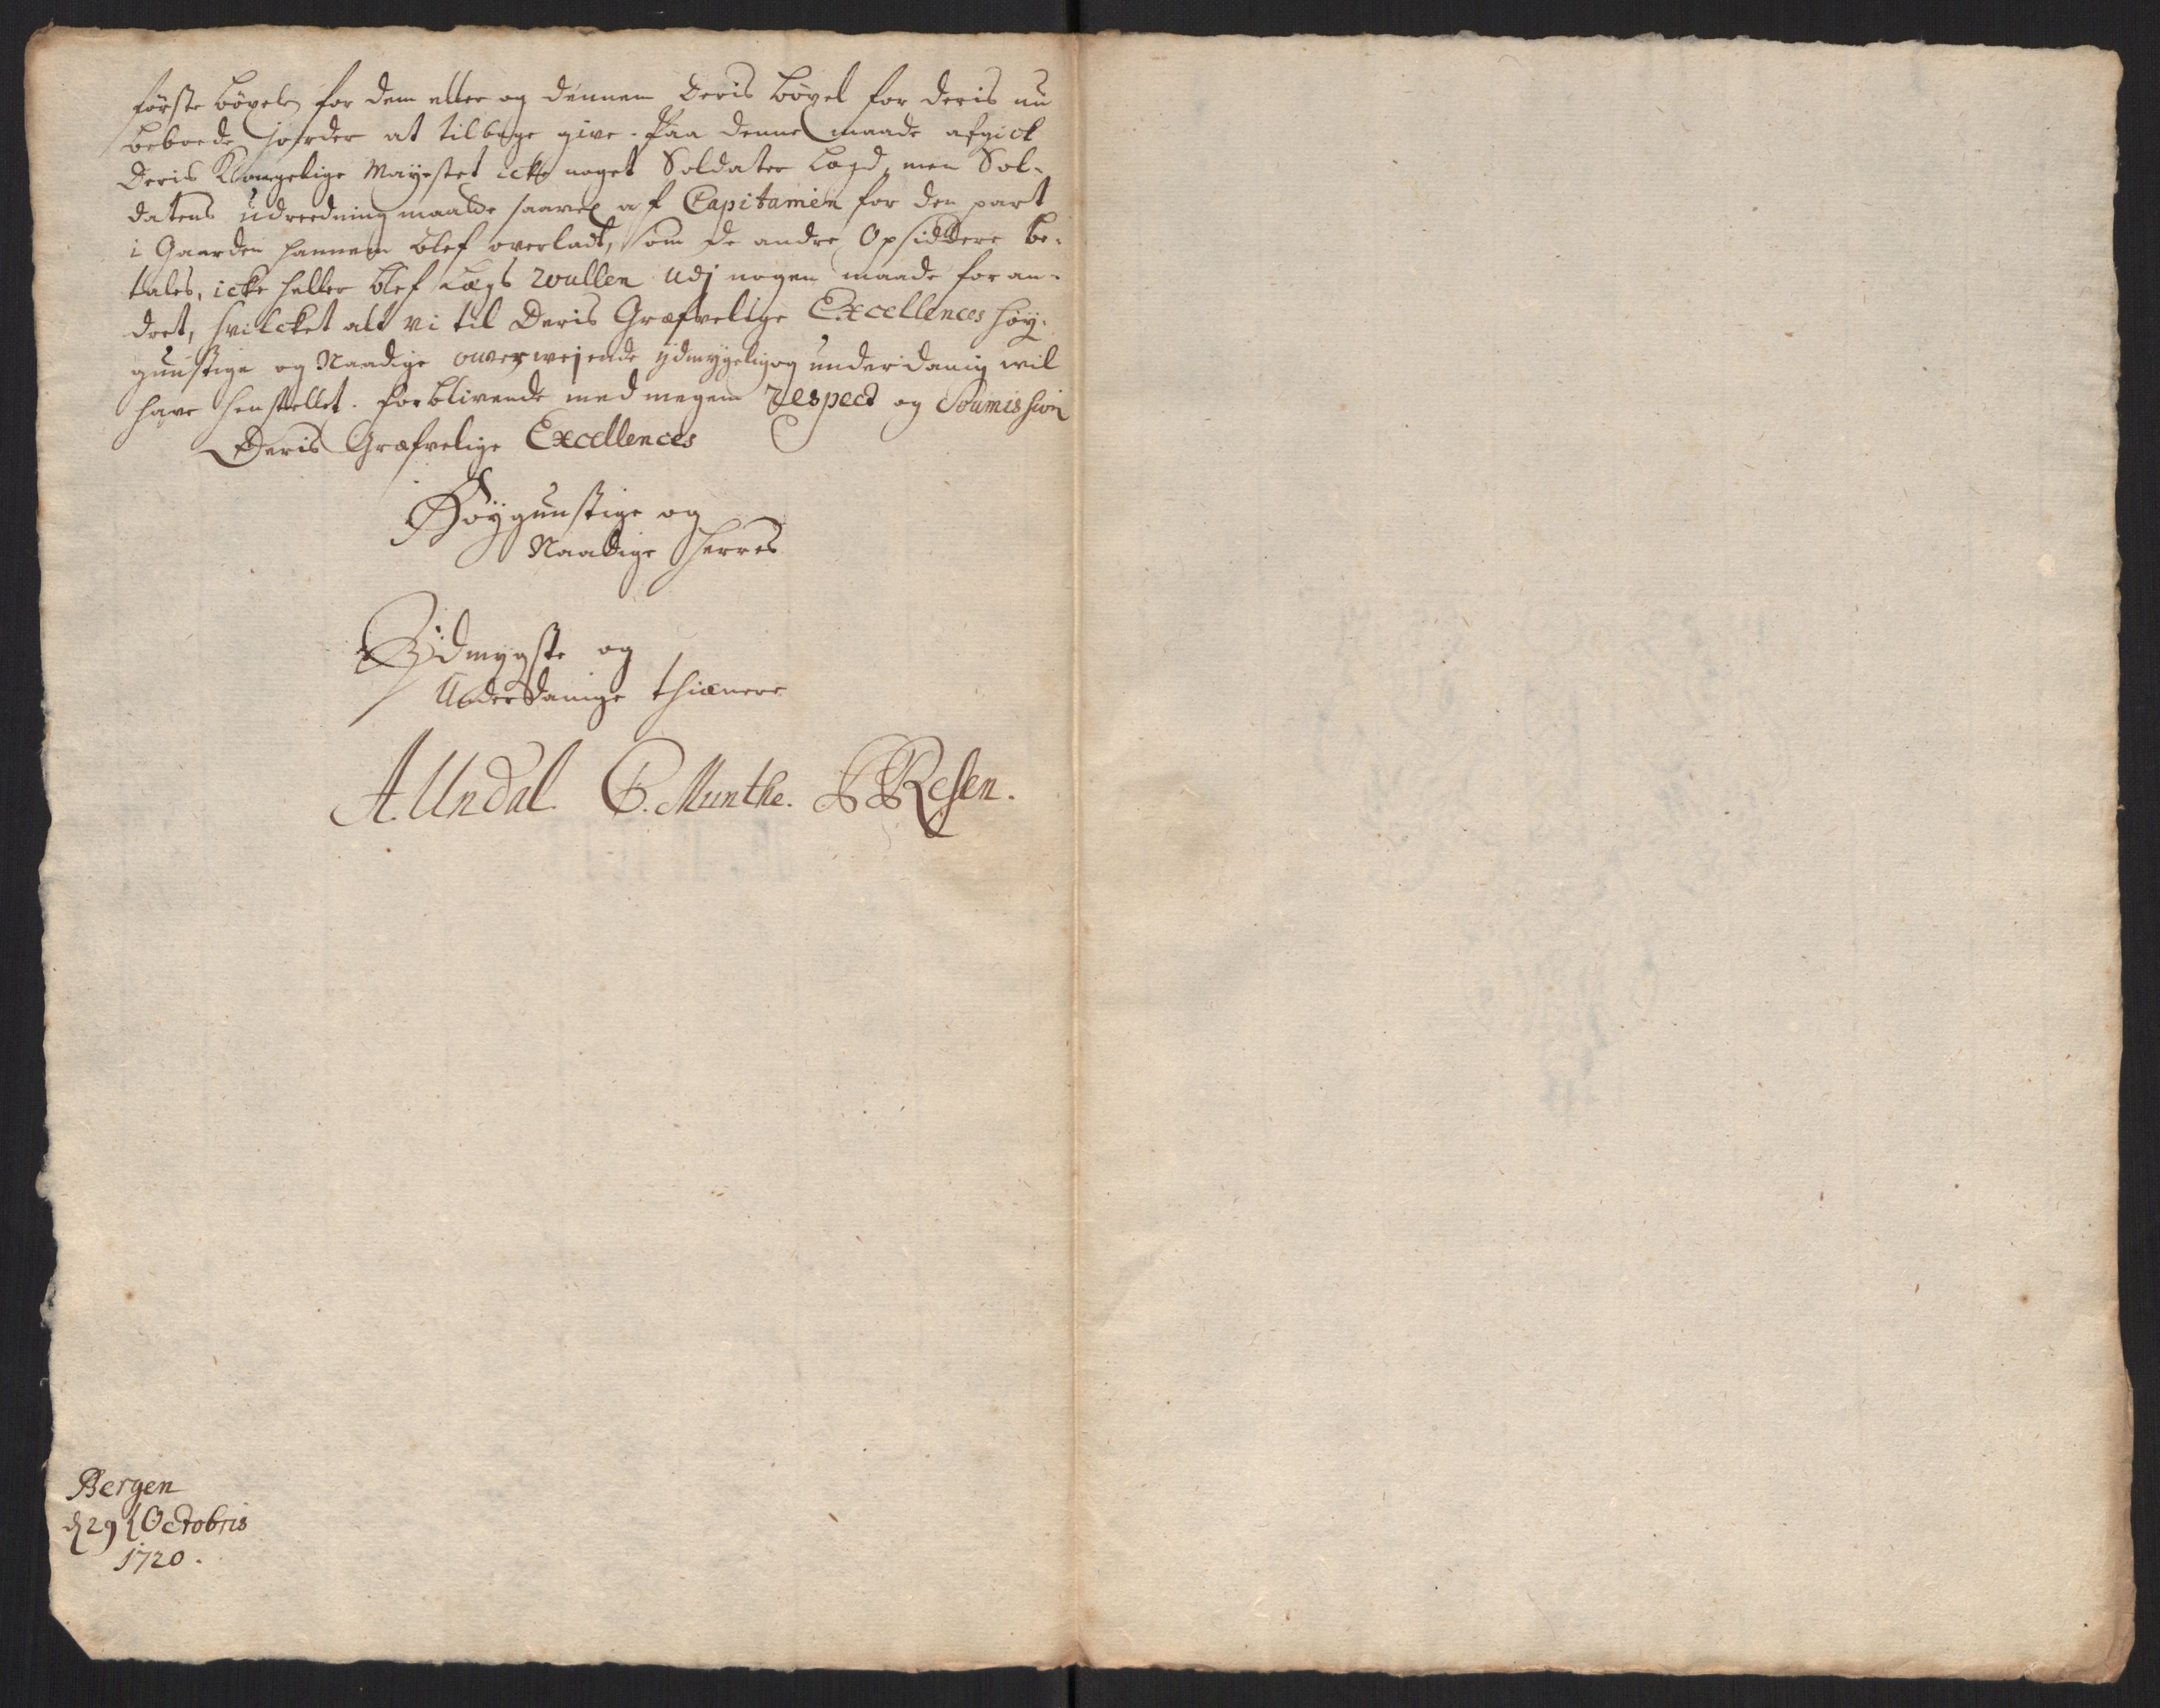 förste böxel for dem eller og dennem deris böxel for deris nu
beboede jorder at tilbage give. Paa denne maade afgick
Deris Kongelige Mayestet icke noget Soldater Lægd, men Sol-
datens udreedning maatte saavel af Capitainen for den part
i Gaarden hannem blef overladt, som de andre Opsiddere be-
tales, icke heller blef Lægs Rullen udj nogen maade foran-
dret, hvilcket alt vi til Deris Græfvelige Excellences høy-
gunstige og Naadige overvejende ydmygelig og underdanig vil
have henstellet. forblivende med megen respect og Soumission
Deris Græfvelige Excellences
Høygunstige og
Naadige Herres
Ydmygste og
Underdanige thienere
A. Undal. C. Munthe. Resen.
Bergen
d 29 Octobris
1720.